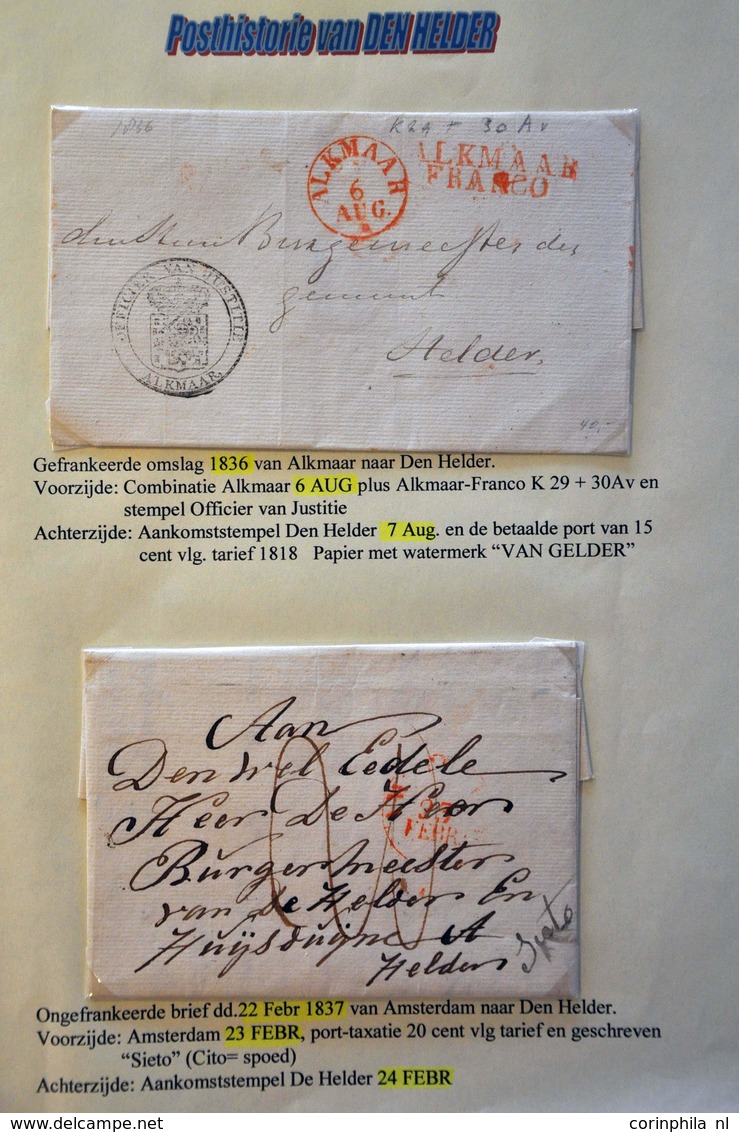 Posthistorie van DEN HELDER
1836 K29 + 30Av
ALKMAAR
6
AUG.
ALKMAAR
FRANCO
Burgemeester der
gemeent
Helder
OFFICIER VAN JUSTITIE
ALKMAAR
40,-
Gefrankeerde omslag 1836 van Alkmaar naar Den Helder.
Voorzijde: Combinatie Alkmaar 6 AUG plus Alkmaar-Franco K 29 + 30Av en
stempel Officier van Justitie
Achterzijde: Aankomststempel Den Helder 7 Aug. en de betaalde port van 15
cent vlg. tarief 1818 Papier met watermerk “VAN GELDER”
Aan
Den wel Eedele
Heer De Heer
Burgermeester
van De Helder En
Huijsduijne A
Helder
23
FEBR
Ongefrankeerde brief dd.22 Febr 1837 van Amsterdam naar Den Helder.
Voorzijde: Amsterdam 23 FEBR, port-taxatie 20 cent vlg tarief en geschreven
“Sieto” (Cito= spoed)
Achterzijde: Aankomststempel De Helder 24 FEBR
corinphila nl